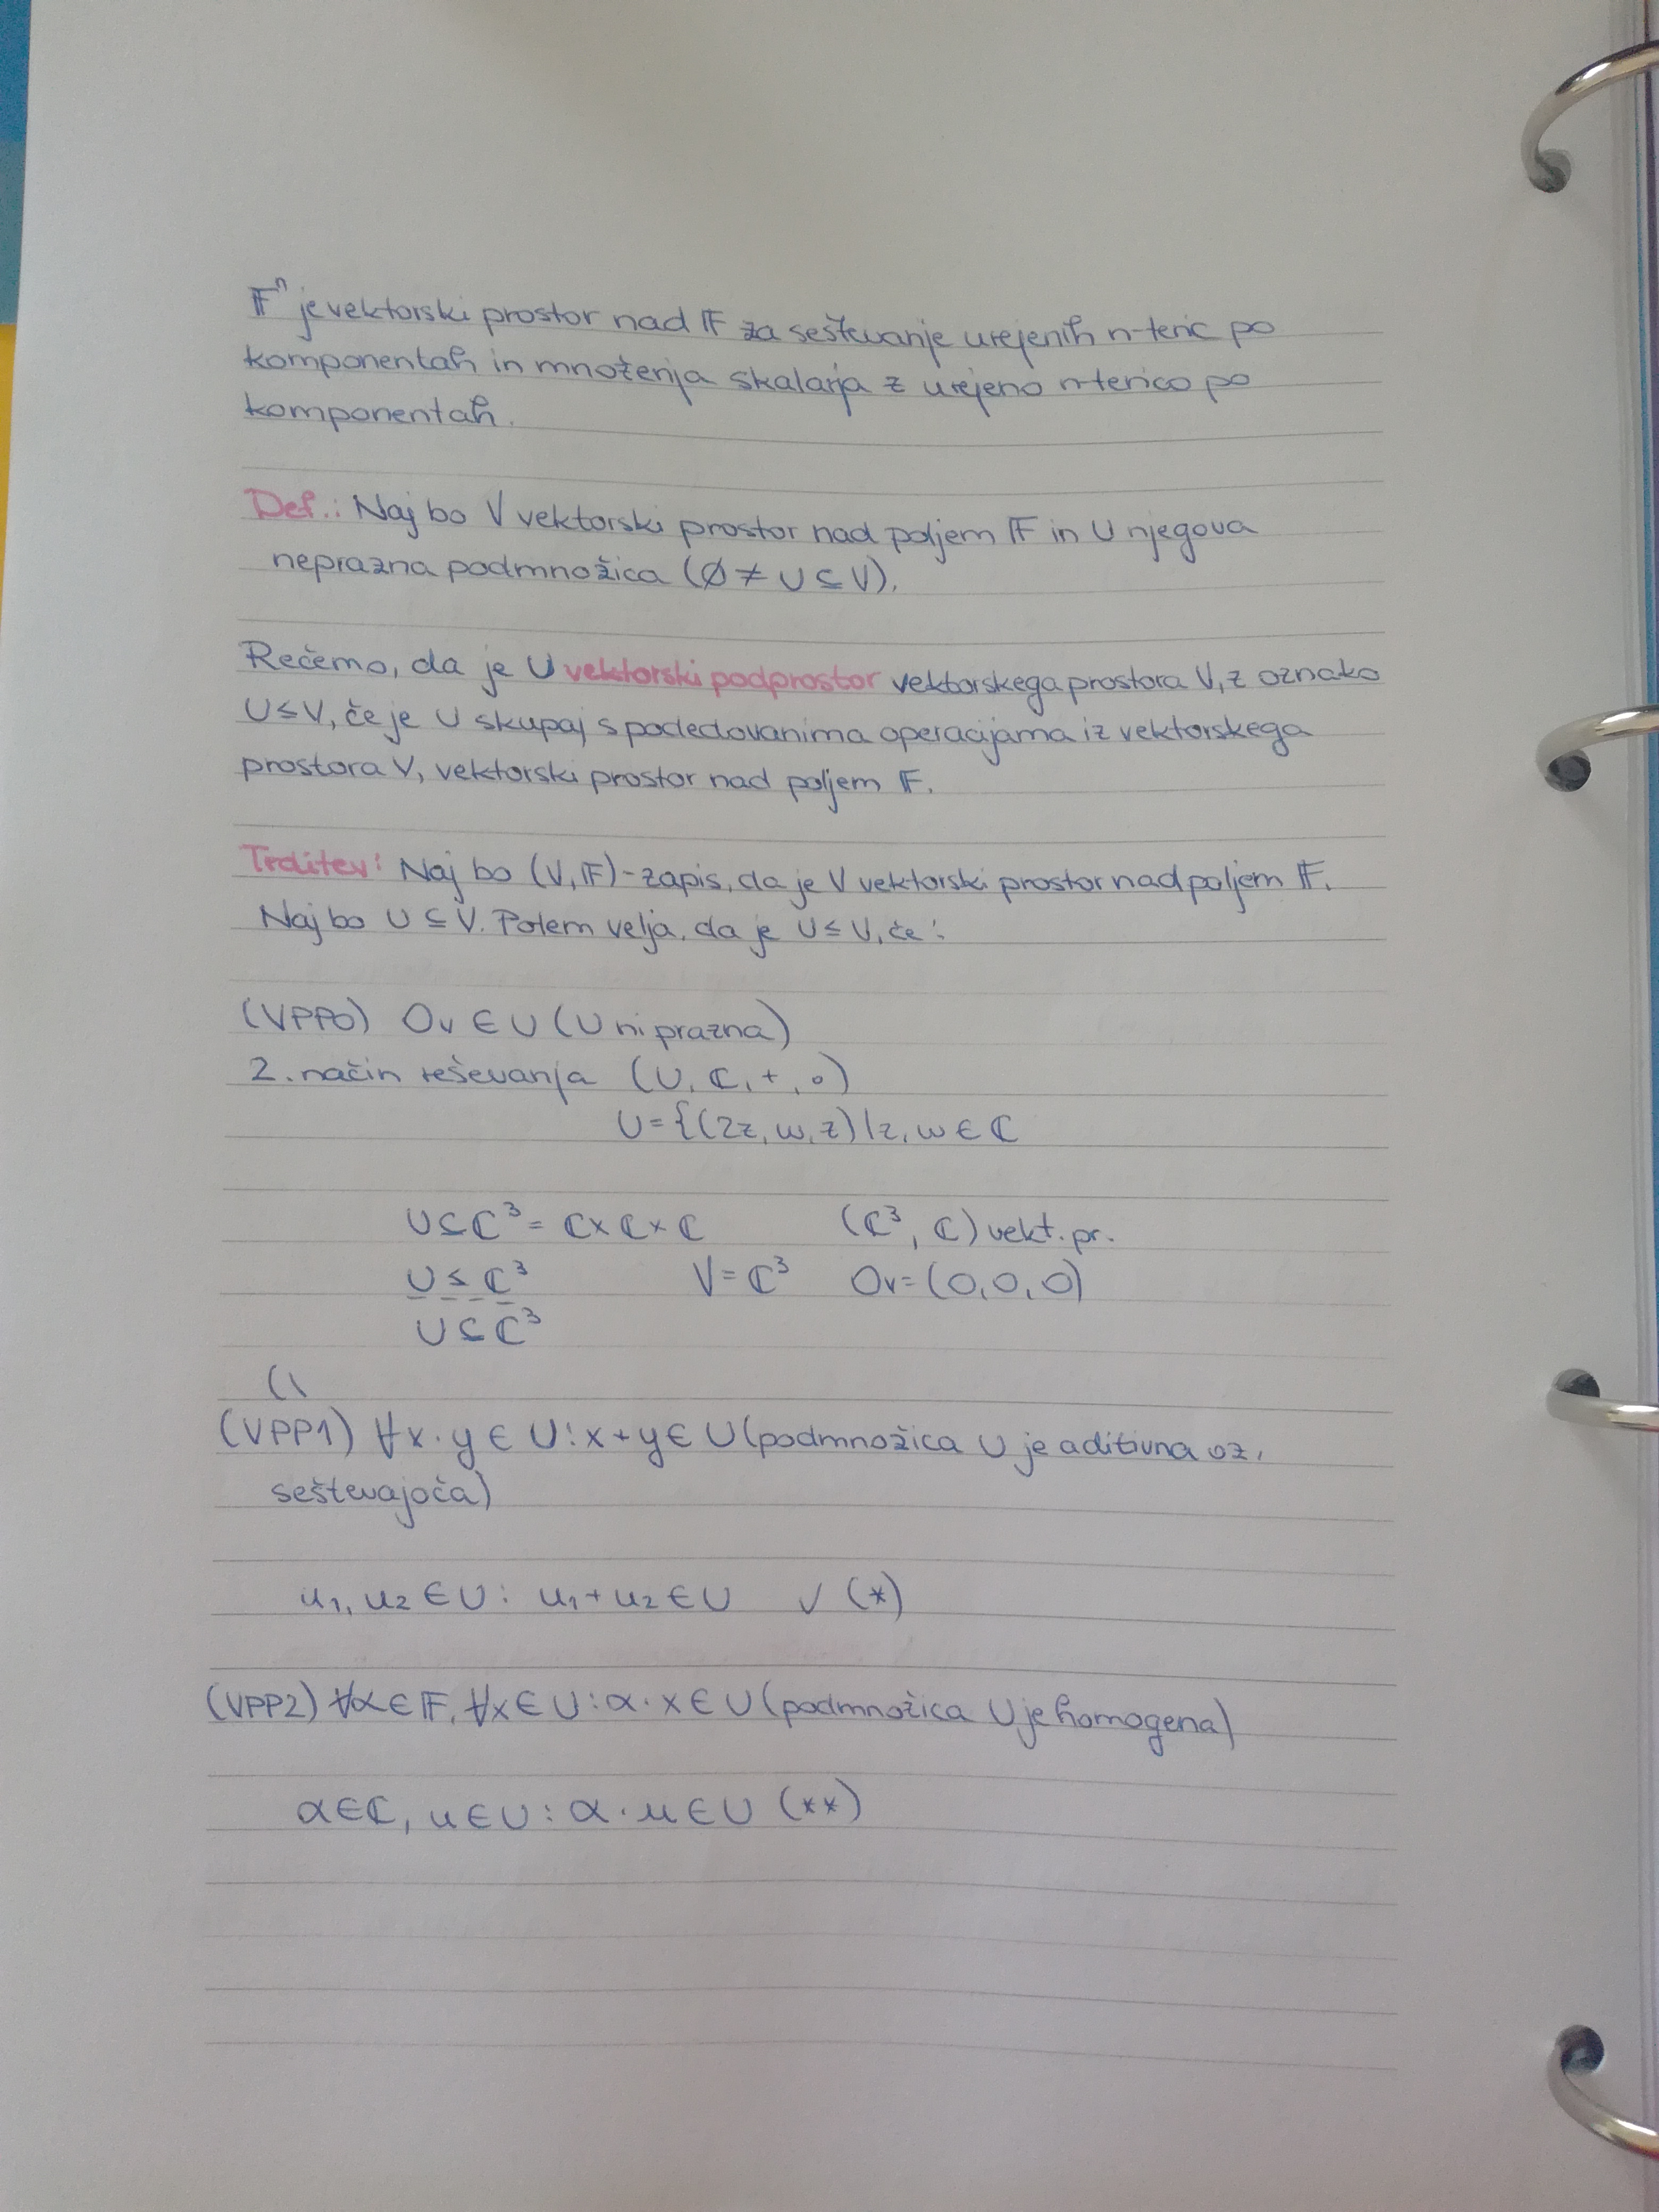 𝔽ⁿ je vektorski prostor nad 𝔽 za seštevanje urejenih n-teric po
komponentah in množenja skalarja z urejeno n-terico po
komponentah.
Def.: Naj bo V vektorski prostor nad poljem 𝔽 in U njegova
neprazna podmnožica (∅ ≠ U ⊆ V).
Rečemo, da je U vektorski podprostor vektorskega prostora V, z oznako
U ≤ V, če je U skupaj s podedovanima operacijama iz vektorskega
prostora V, vektorski prostor nad poljem 𝔽.
Trditev: Naj bo (V, 𝔽) - zapis, da je V vektorski prostor nad poljem 𝔽.
Naj bo U ⊆ V. Potem velja, da je U ≤ V, če:
(VPP0) 0v ∈ U (U ni prazna)
2. način reševanja (U, ℂ, +, ∘)
U = {(2z, w, z) | z, w ∈ ℂ
U ⊆ ℂ³ = ℂ × ℂ × ℂ (ℂ³, ℂ) vekt. pr.
U ≤ ℂ³ V = ℂ³ 0v = (0, 0, 0)
U ⊆ ℂ³
(\
(VPP1) ∀x · y ∈ U : x + y ∈ U (podmnožica U je aditivna oz.
seštevajoča)
u₁, u₂ ∈ U : u₁ + u₂ ∈ U ✓ (*)
(VPP2) ∀α ∈ 𝔽, ∀x ∈ U : α · x ∈ U (podmnožica U je homogena)
α ∈ ℂ, u ∈ U : α · u ∈ U (**)